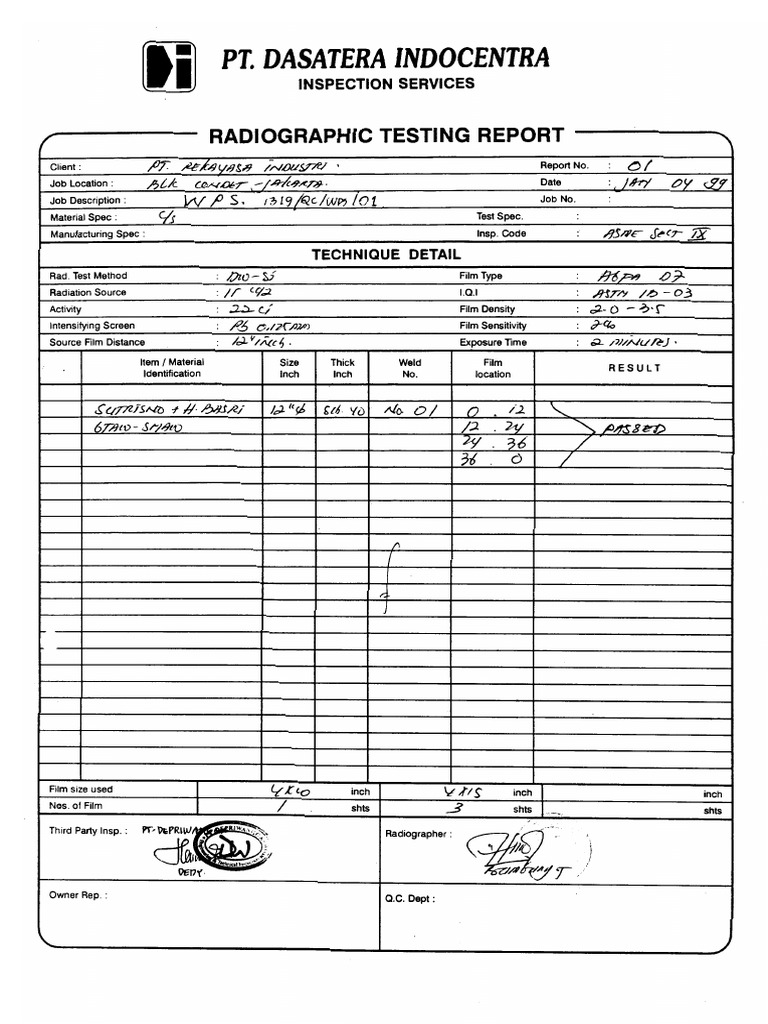 Di
PT. DASATERA INDOCENTRA
INSPECTION SERVICES
RADIOGRAPHIC TESTING REPORT
Client : PT. REKAYASA INDUSTRI. Report No. : 01
Job Location : BLK CONDET - JAKARTA. Date : JAN 04 99
Job Description : WPS. 1319/QC/WPS/01 Job No. :
Material Spec : C/S Test Spec. :
Manufacturing Spec : Insp. Code : ASME SECT IX
TECHNIQUE DETAIL
Rad. Test Method : DW-Si Film Type : AGFA D7
Radiation Source : Ir 192 I.Q.I : ASTM 1B-03
Activity : 22 Ci Film Density : 2.0 - 3.5
Intensifying Screen : Pb 0.125 mm Film Sensitivity : 2%
Source Film Distance : 12" inch. Exposure Time : 2 MINUTES.
Item / Material Identification Size Inch Thick Inch Weld No. Film location RESULT
SUTRISNO + H. BASRI 12"φ Sch 40 No 01 0 . 12
GTAW-SMAW 12 . 24 PASSED
24 . 36
36 . 0
Film size used 4x10 inch 4x15 inch inch
Nos. of Film 1 shts 3 shts shts
Third Party Insp. : PT. DEPRIWANGGA Radiographer :
DEDY.
Owner Rep. : Q.C. Dept :